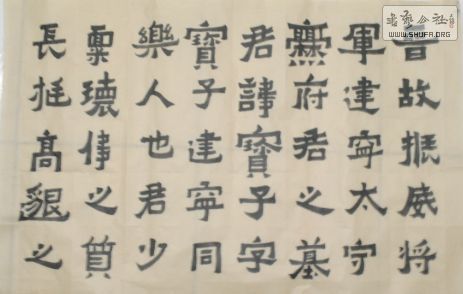 晉故振威將
軍建寧太守
爨府君之墓
君諱寶子字
寶子建寧同
樂人也君少
稟瓌偉之質
長挺高邈之
書藝公社
WWW.SHUFA.ORG